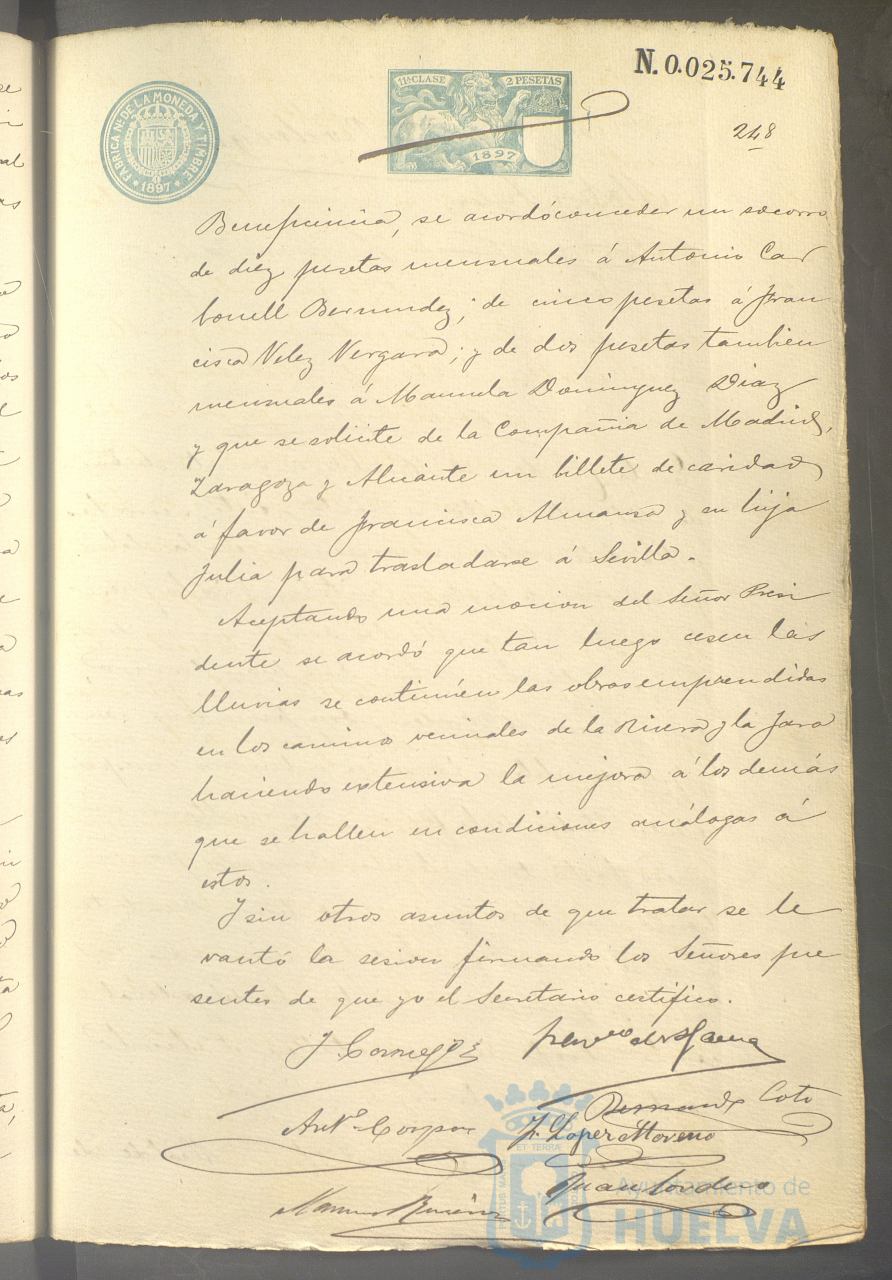 N. 0.025.744
11ª CLASE
2 PESETAS
1897
FABRICA Nl. DE LA MONEDA Y TIMBRE
* 1897 *
248
Beneficencia, se acordó conceder un socorro
de diez pesetas mensuales á Antonio Car
bonell Bermudez; de cinco pesetas á Fran
cisca Velez Vergara; y de dos pesetas tambien
mensuales á Manuela Dominguez Diaz
y que se solicite de la Compañia de Madrid,
Zaragoza y Alicante un billete de caridad
á favor de Francisca Almansa y su hija
Julia para trasladarse á Sevilla.
Aceptando una mocion del Señor Presi
dente se acordó que tan luego cesen las
lluvias se continúen las obras emprendidas
en los caminos vecinales de la Rivera y la Jara
haciendo extensiva la mejora á los demás
que se hallen en condiciones análogas á
estos.
Y sin otros asuntos de que tratar se le
vantó la sesion firmando los Señores pre
sentes de que yo el Secretario certifico.
Coto
Antº
J. Lopez Moreno
Juan Cordero
Manuel
ET TERRA
Ayuntamiento de
HUELVA